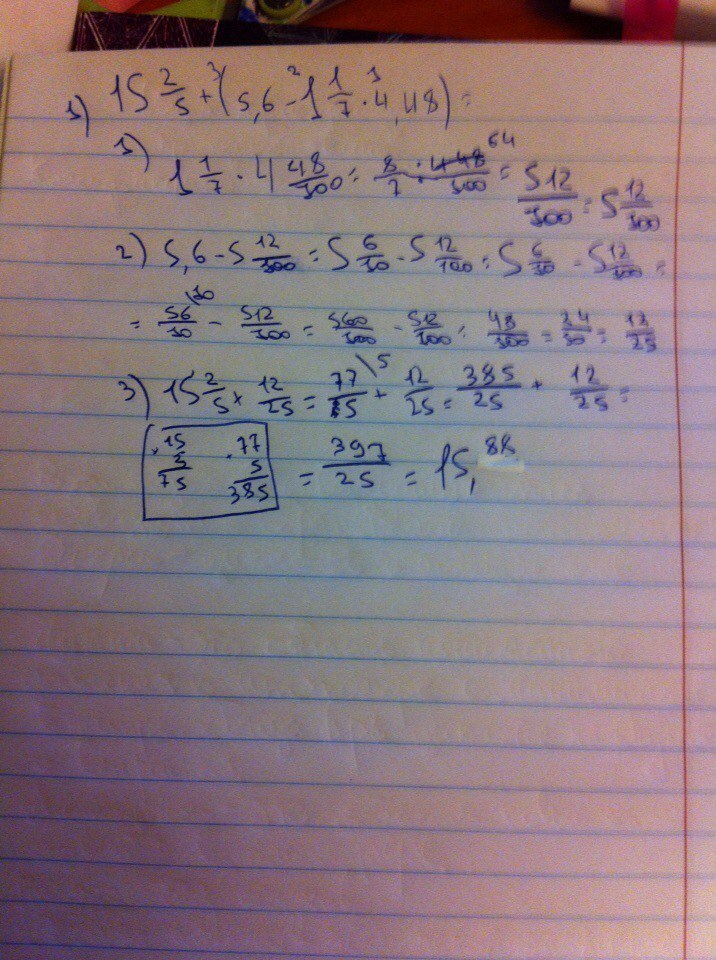 1) 15 2/5 +³ (5,6 -² 1 1/7 ·¹ 4,48) =
1) 1 1/7 · 4 48/100 = 8/7 · 448/100 64 = 512/100 = 5 12/100
2) 5,6 - 5 12/100 = 5 6/10 - 5 12/100 = 5 6/10 - 5 12/100 =
= 56/10 \10 - 512/100 = 560/100 - 512/100 = 48/100 = 24/50 = 12/25
3) 15 2/5 + 12/25 = 77/5 \5 + 12/25 = 385/25 + 12/25 =
= 397/25 = 15,88
· 15 5 75
· 77 5 385